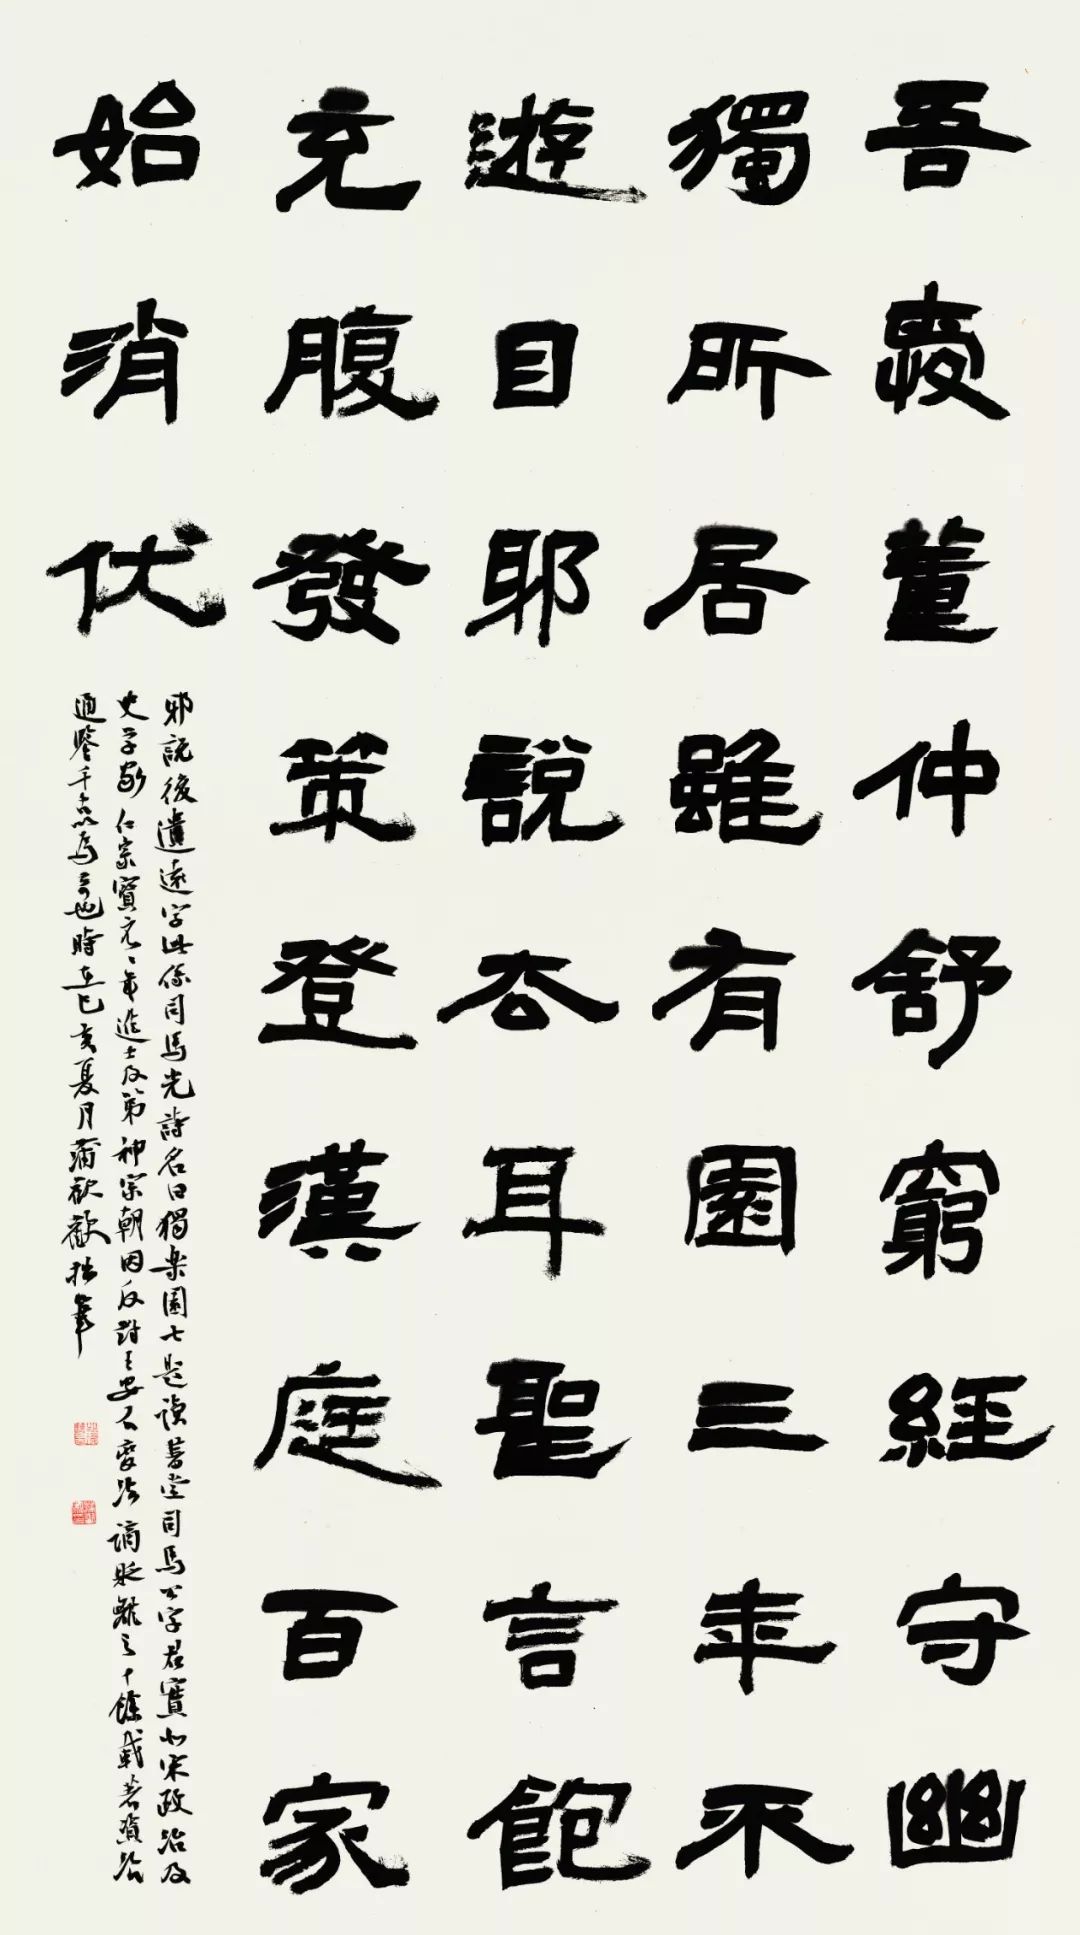 吾愛董仲舒窮經守幽
獨所居雖有園三年不
遊目耶說去耳聖言飽
充腹發策登漢庭百家
始消伏
邪說後遺遠字此係司馬光詩名曰獨樂園七題讀書堂司馬公字君實北宋政治及
史學家仁宗寶元二年進士及第神宗朝因反對王安石變法謫貶離京十餘載著資治
通鑒千古以爲奇也時在己亥夏月蒲欲歡拙筆